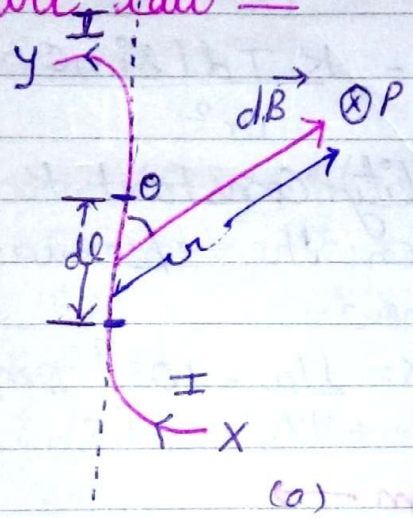 I
y
dB
P
θ
dl
r
I
X
(a)